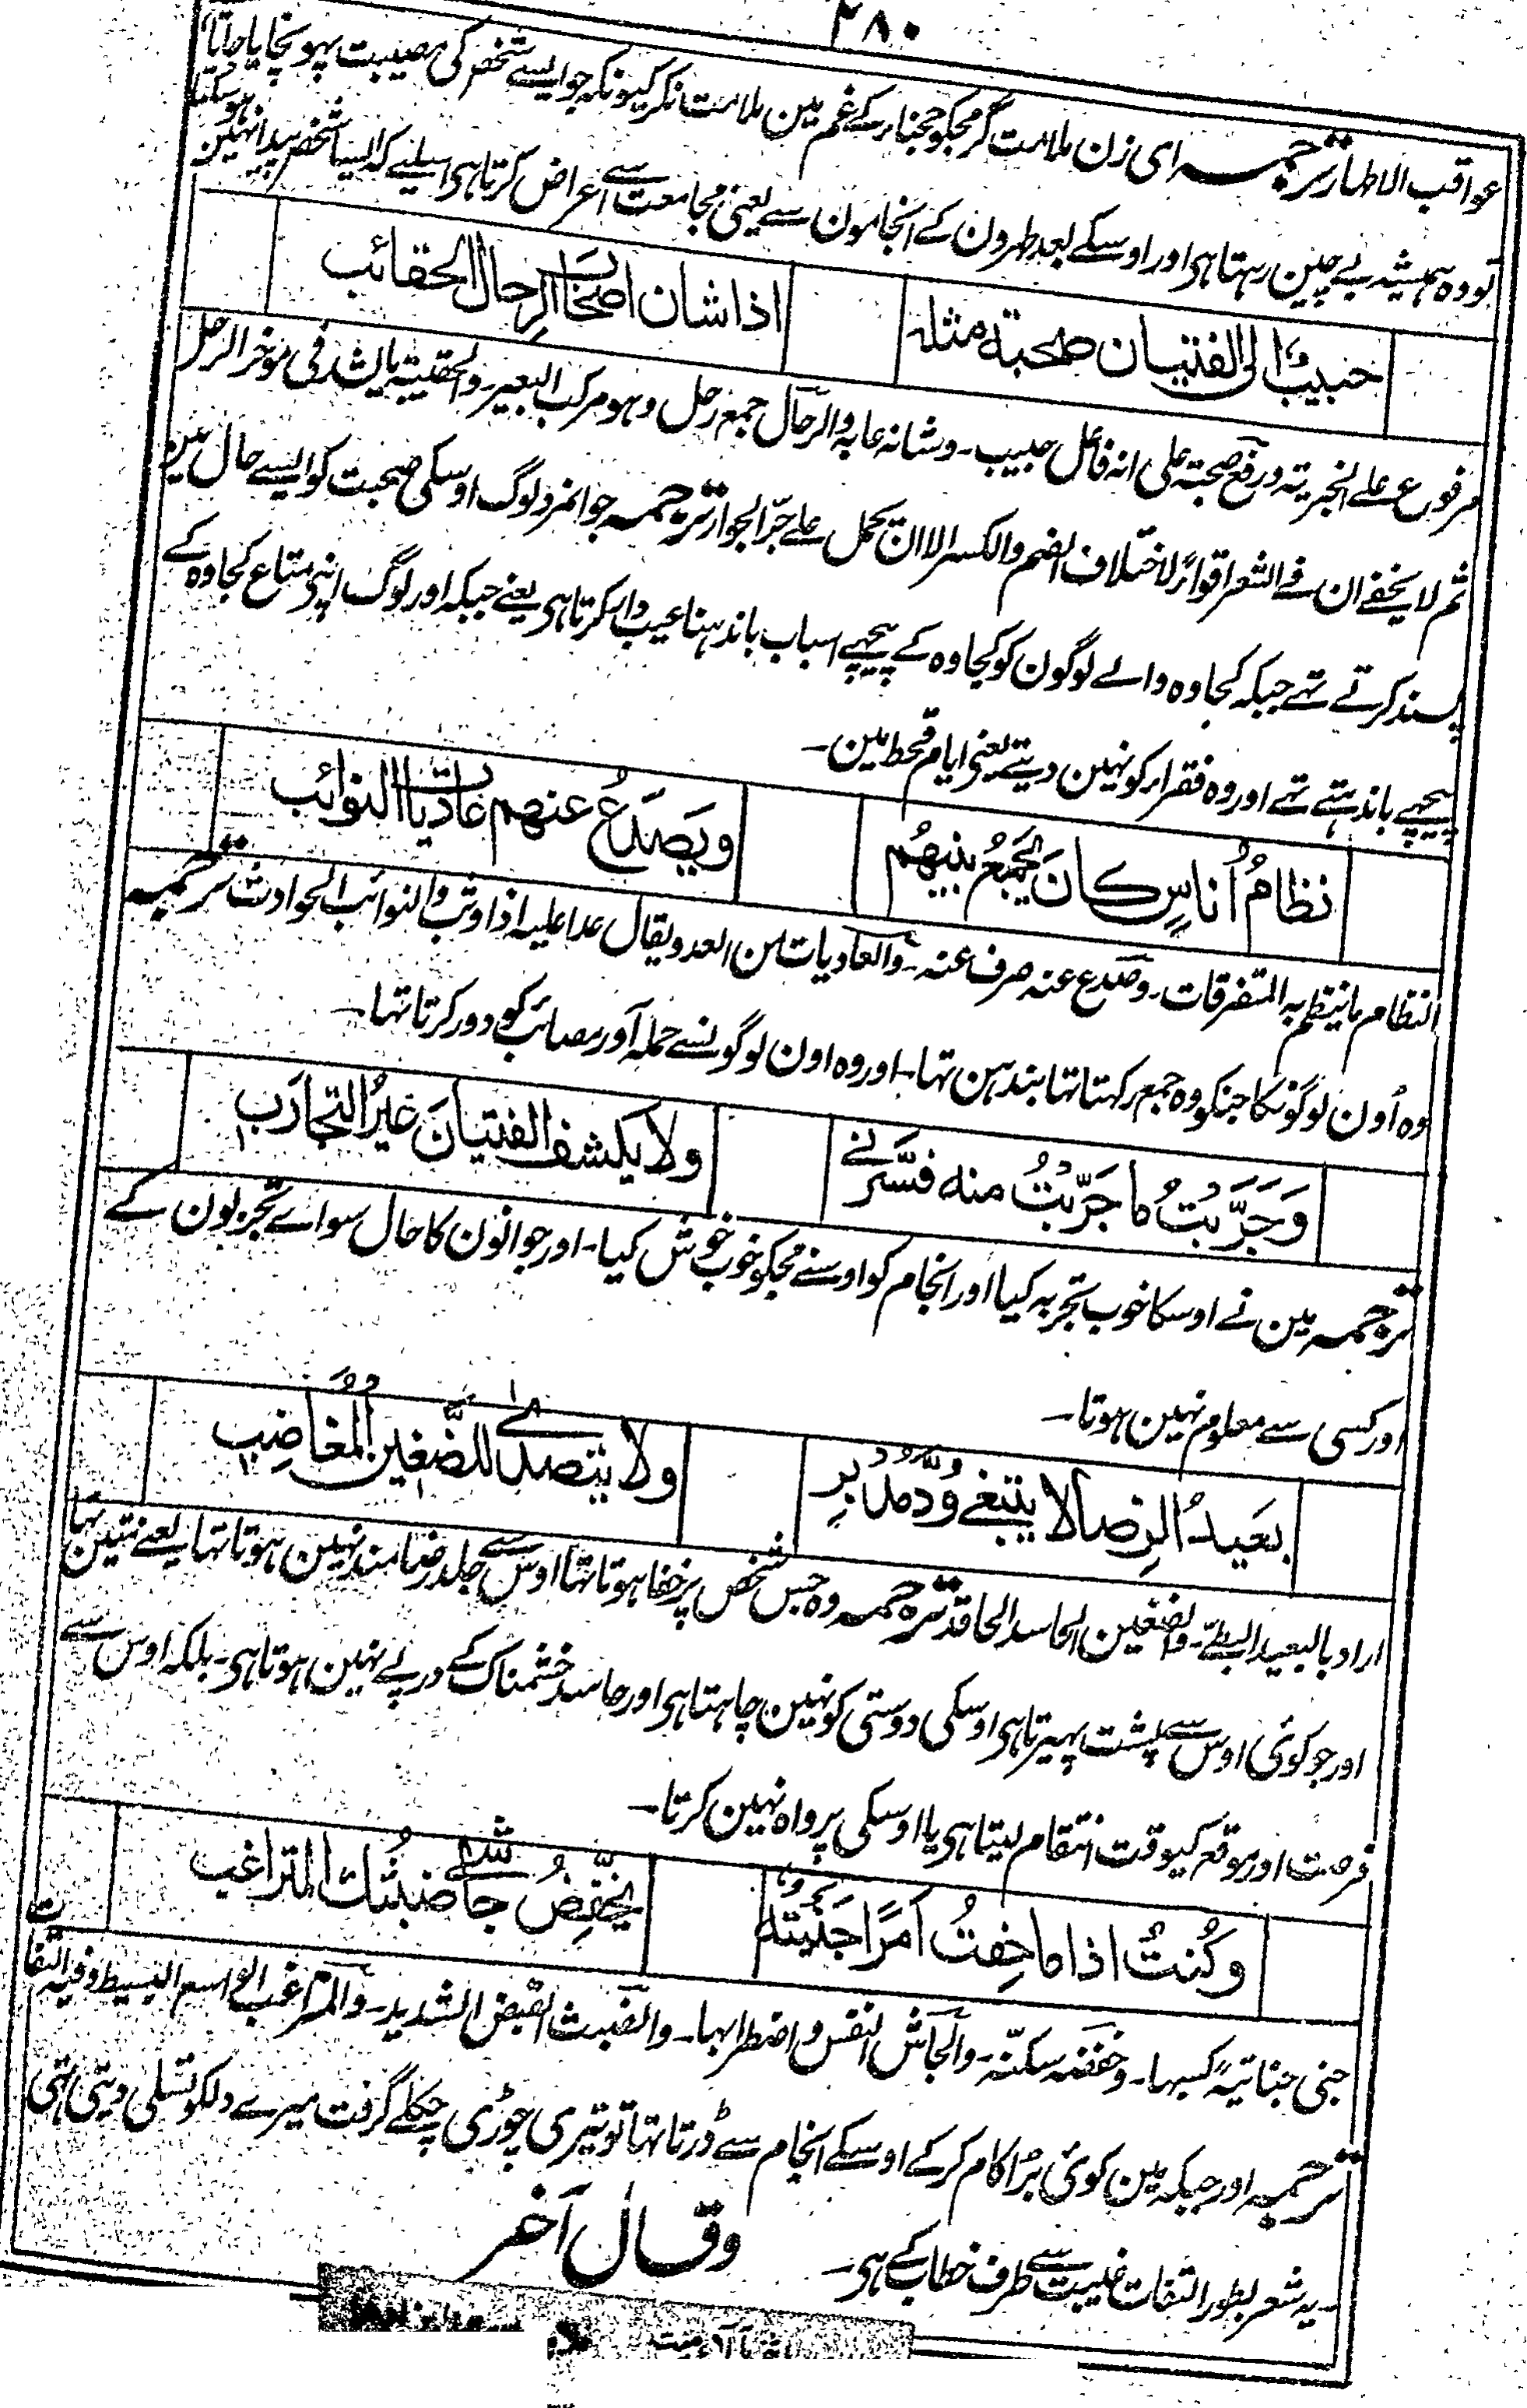 ۲۸۰
عواقب الاطہار ترجمہ ای زن ملامت گر مجکو حجناء کے غم مین ملامت نکر کیونکہ جو ایسے شخص کی مصیبت پہونچایا جاتا ہی
تو وہ ہمیشہ بے چین رہتا ہی اور اوسکے بعد طہرون کے انجامون سے یعنی مجامعت سے اعراض کرتا ہی اسلیے کہ ایسا شخص پیدا نہین ہو سکتا
حبیبٌ الی الفتیان صحبة مثله
اذا شان اصحابَ الرحال الحقائب
مرفوع علے الخبریتہ ورفع صحبتہ علی انہ فاعل حبیب۔ وشانہ عابہ والرحال جمع رحل وہو مرکب البعیر۔ والحقیبتہ ما یشد فی موخر الرحل
ثم لا یخفے ان فے الشعر اقواءً لاختلاف الضم والکسر الا ان یحمل علے جر الجوار ترجمہ جوانمرد لوگ اوسکی صحبت کو ایسے حال مین
پسند کرتے تھے جبکہ کجاوہ والے لوگون کو کجاوہ کے پیچھے اسباب باندہنا عیب دار کرتا ہی یعنے جبکہ اور لوگ اپنی متاع کجاوہ کے
پیچھے باندہتے تھے اور وہ فقراء کو نہین دیتے یعنی ایام قحط مین۔
نظامُ اُناسٍ کانَ یجمعُ بینهُم
ویَصدَعُ عنهم عادیاتُ النوائب
النظام ما ینتظم بہ المتفرقات۔ وصدع عنہ صرف عنہ۔ والعادیات من العدو یقال عدا علیہ اذا وثب والنوائب الحوادث ترجمہ
وہ اُون لوگونکا جنکو وہ جمع رکہتا تہا بندہن تہا۔ اور وہ اون لوگونسے حملہ آور مصائب کو دور کرتا تہا۔
وَجَرَّبتُ ما جَرَّبتُ منه فسَرَّنے
ولا یکشف الفتیانَ غیرُ التجارَب
ترجمہ مین نے اوسکا خوب تجربہ کیا اور انجام کو اوسنے مجکو خوب خوش کیا۔ اور جوانون کا حال سواے تجربون کے
اور کسی سے معلوم نہین ہوتا۔
بعَیدُ الرِضا لا یبتغے وُدَّ مُدبرٍ
ولا یتصدّٰے للضَّغین المُغاضِب
اراد بالبعید البطے۔ والضغین الحاسد الحاقد ترجمہ وہ جس شخص پر خفا ہوتا تہا اوس سے جلد رضامند نہین ہوتا تہا یعنے متین تہا
اور جو کوئی اوس سے پشت پہیرتا ہی اوسکی دوستی کو نہین چاہتا ہی اور حاسد خشمناک کے درپے نہین ہوتا ہی۔ بلکہ اوس سے
فرصت اور موقع کیوقت انتقام لیتا ہی یا اوسکی پرواہ نہین کرتا۔
وکُنتُ اذا ما خِفتُ اَمرًا جَنَیتُهُ
یُخَفِّضُ جاشے ضبثُكَ المتراغب
جنی جنایتہً کسبہا۔ وخفضہ سکنہ۔ والجاش النفس واضطرابہا۔ والضبث القبض الشدید۔ والمتراغب الواسع البسیط وفیہ التفات
ترجمہ اور جبکہ مین کوئی بڑا کام کرکے اوسکے انجام سے ڈرتا تہا تو تیری چوڑی چکلے گرفت میرے دلکو تسلی دیتی تہی
یہ شعر بطور التفات غیبت سے طرف خطاب کے ہی۔
وقال آخر